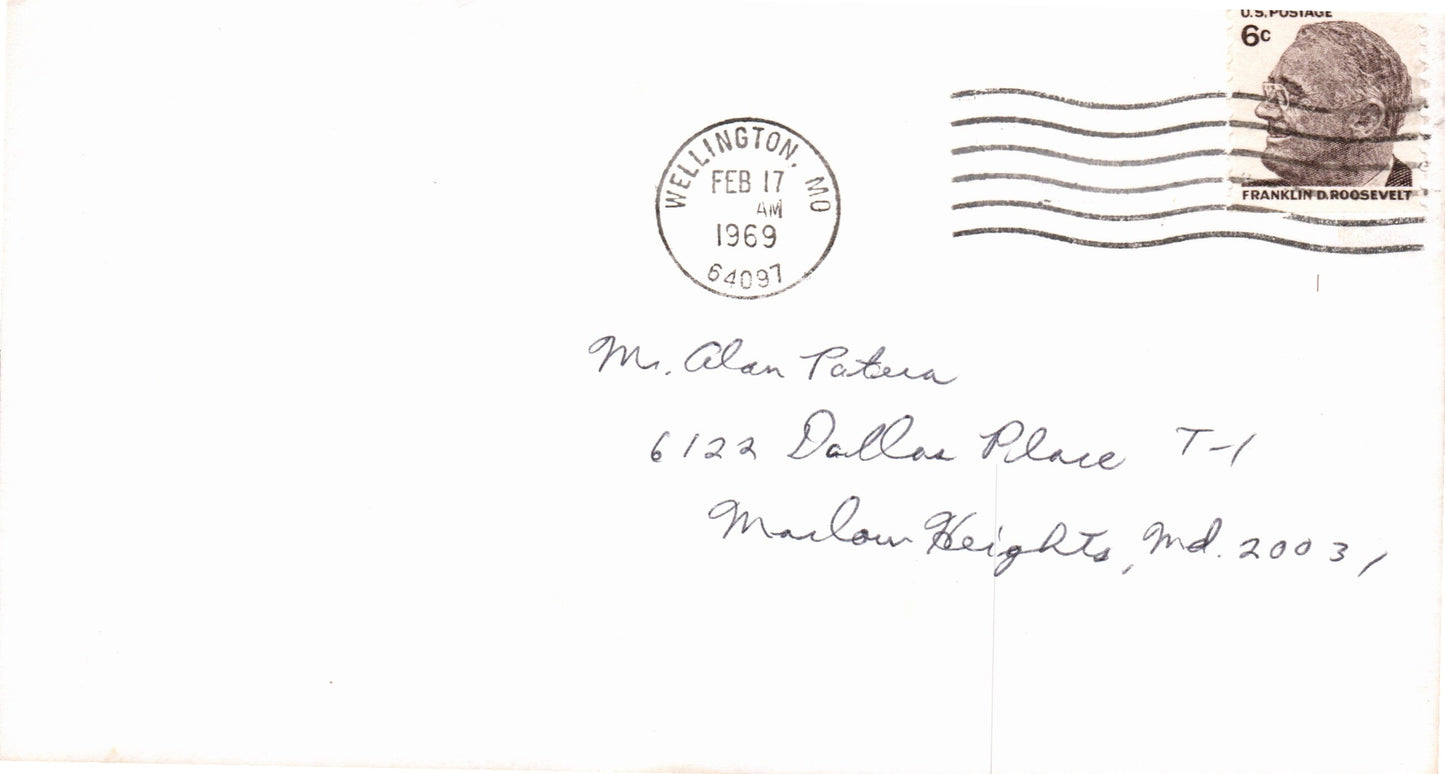 U.S. POSTAGE
6c
FRANKLIN D. ROOSEVELT
WELLINGTON, MO
FEB 17
AM
1969
64097
Mr. Alan Patera
6122 Dallas Place T-1
Marlow Heights, Md. 20031